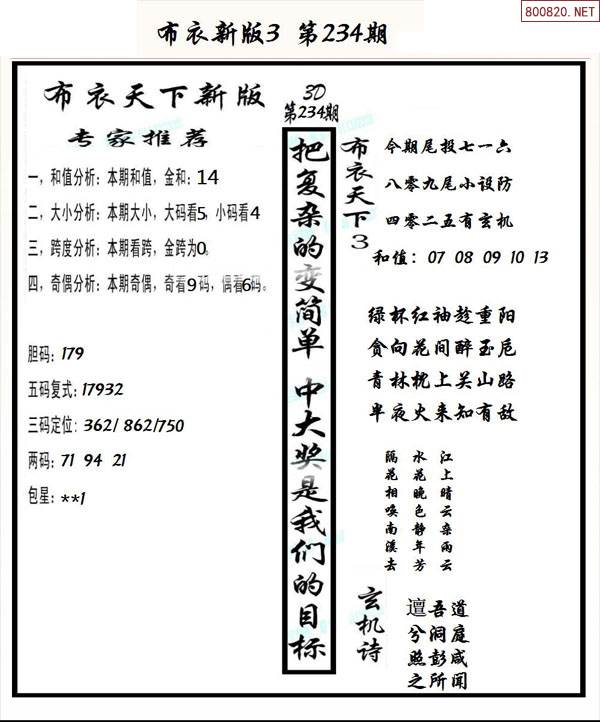 800820.NET
布衣新版3 第234期
布衣天下新版
专家推荐
一，和值分析：本期和值，金和：14
二，大小分析：本期大小，大码看5，小码看4
三，跨度分析：本期看跨，金跨为0。
四，奇偶分析：本期奇偶，奇看9码，偶看6码。
胆码：179
五码复式：17932
三码定位：362/ 862/750
两码：71 94 21
包星：**1
3D
第234期
把复杂的变简单 中大奖是我们的目标
布衣天下3
今期尾投七一六
八零九尾小设防
四零二五有玄机
和值：07 08 09 10 13
绿杯红袖趁重阳
贪向花间醉玉卮
青林枕上关山路
半夜火来知有敌
江上晴云杂雨云
水花晚色静年芳
隔花相唤南溪去
玄机诗
邅吾道
兮洞庭
照彭咸
之所闻